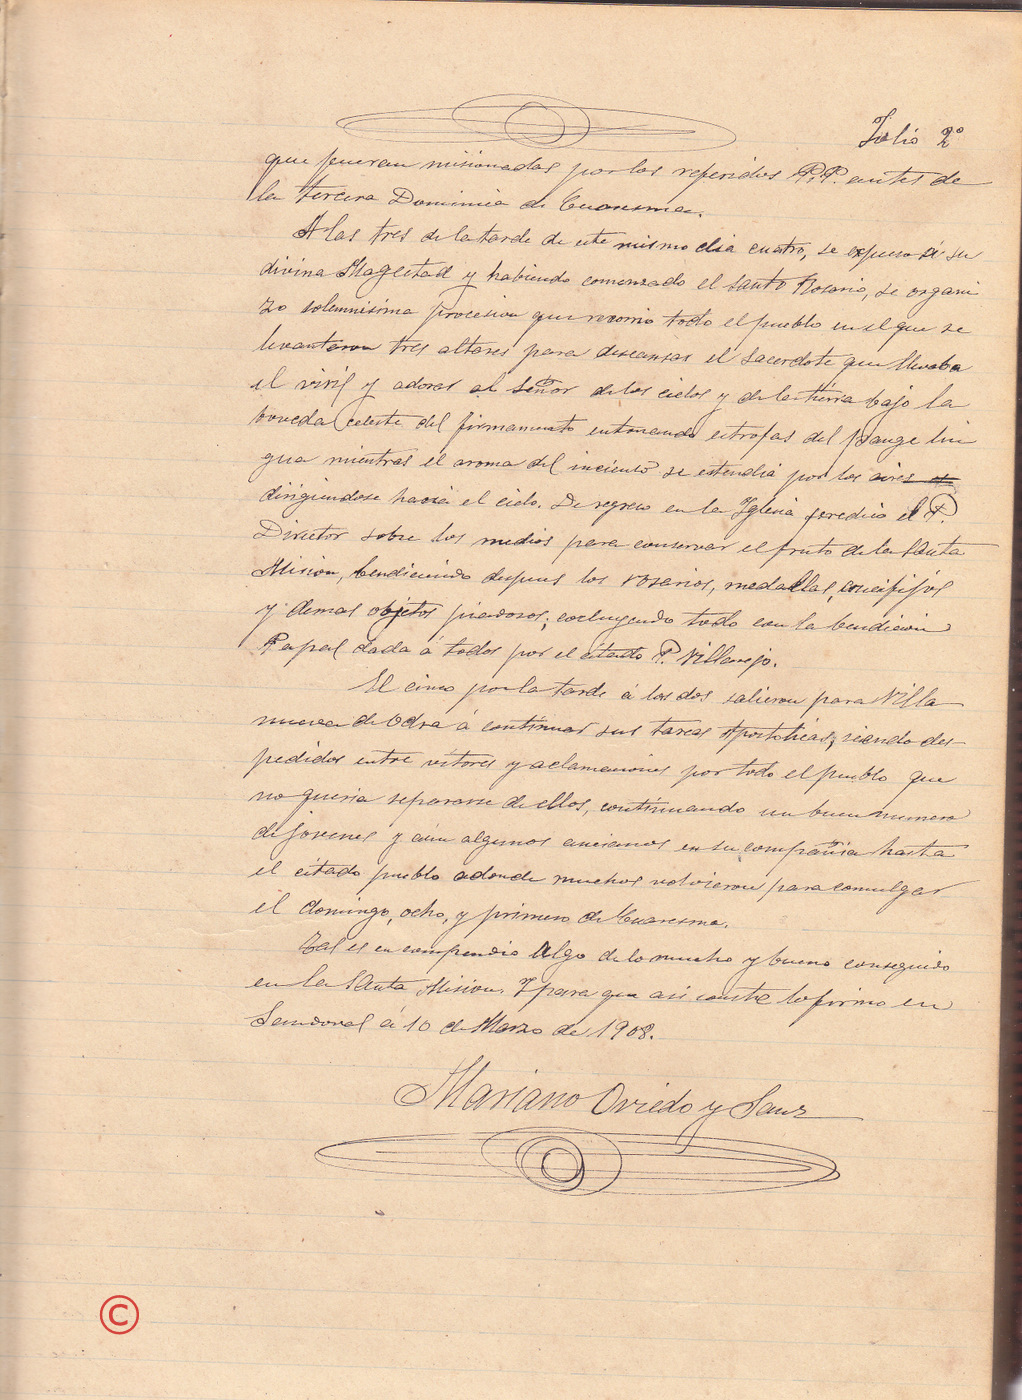 Folio 2º
que fueran misionadas por los referidos P.P. antes de
la tercera Dominica de Cuaresma.
A las tres de la tarde de este mismo dia cuatro, se expuso á su
divina Magestad y habiendo comenzado el santo Rosario, se organi
zo solemnisima procesion que recorrio todo el pueblo en el que se
levantaron tres altares para descansar el sacerdote que llevaba
el viril y adorar al Señor de los cielos y de la tierra bajo la
boveda celeste del firmamento entonando estrofas del pange lin
gua mientras el aroma del incienso se estendia por los aires
dirigiendose hacia el cielo. De regreso en la Iglesia predico el P.
Director sobre los medios para conservar el fruto de la Santa
Mision, bendiciendo despues los rosarios, medallas, crucifijos
y demas objetos piadosos; concluyendo todo con la bendicion
Papal dada á todos por el citado P. Villarejo.
El cinco por la tarde á las dos salieron para Villa
nueva de Odra á continuar sus tareas Apostolicas, siendo des-
pedidos entre vitores y aclamaciones por todo el pueblo que
no queria separarse de ellos, continuando un buen numero
de jovenes y aún algunos ancianos en su compañia hasta
el citado pueblo adonde muchos volvieron para comulgar
el domingo, ocho, y primero de Cuaresma.
Tal es en compendio algo de lo mucho y bueno conseguido
en la Santa Mision. Y para que asi conste lo firmo en
Sandoval á 10 de Marzo de 1908.
Mariano Oviedo y Sanz
©